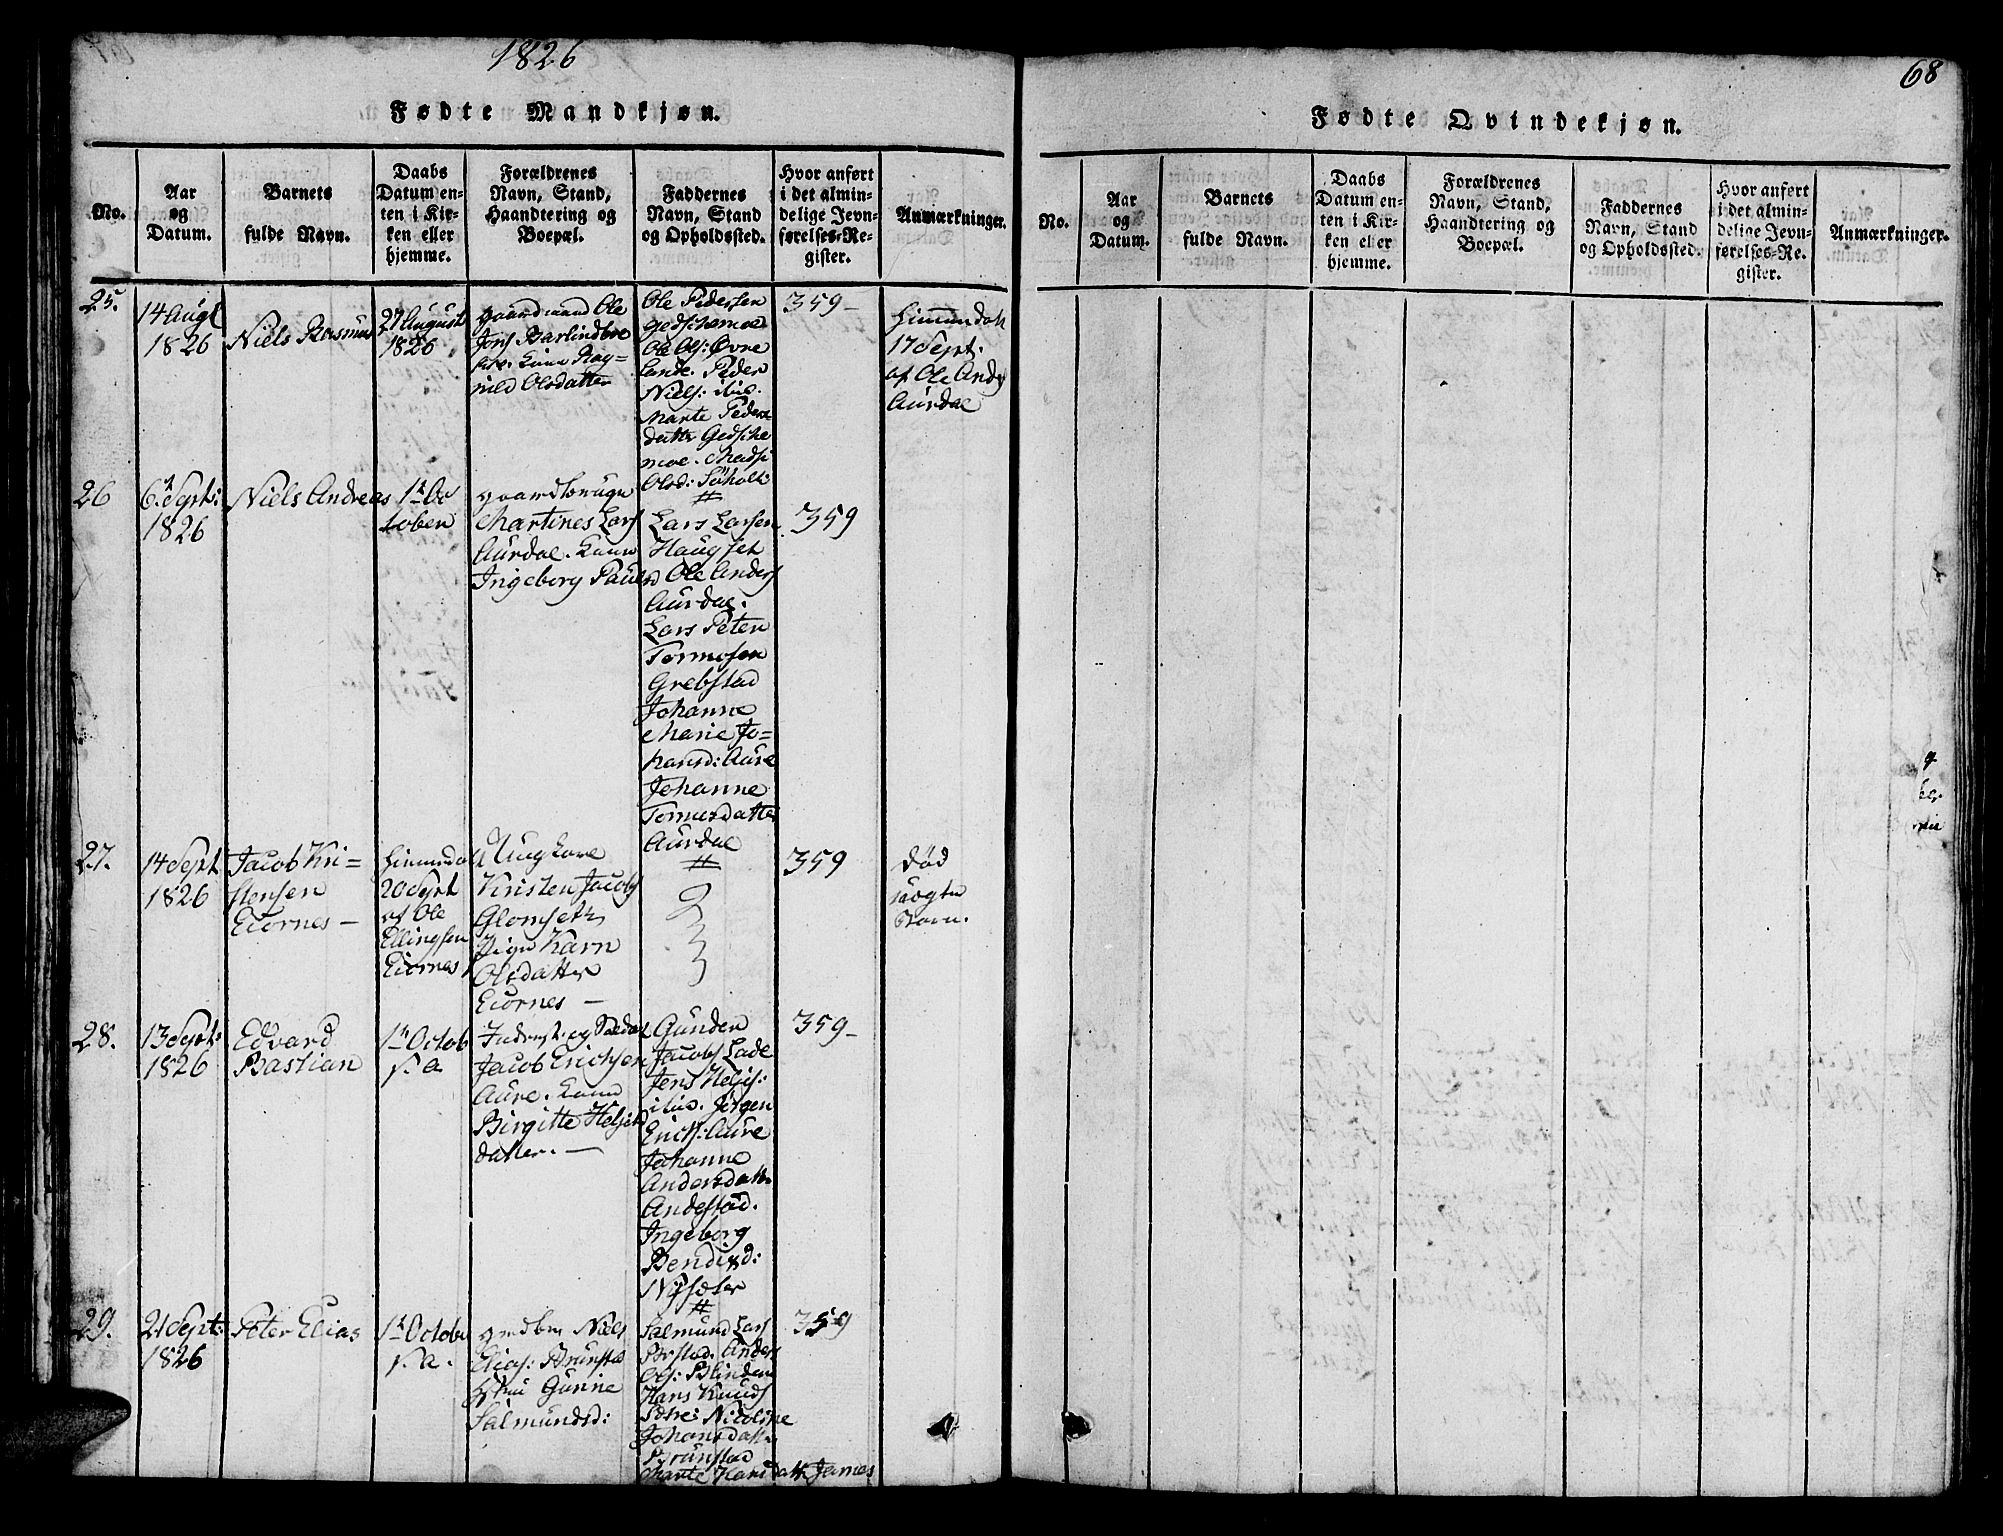 1826
68
Fødte Mandkjøn.
No.
Aar
og
Datum.
Barnets
fulde Navn.
Daabs
Datum en-
ten i Kir-
ken eller
hjemme.
Forældrenes
Navn, Stand,
Haandtering og
Boepæl.
Faddernes
Navn, Stand
og Opholdssted.
Hvor anført
i det almin-
delige Jevn-
førelses-Re-
gister.
Anmærkninger.
25.
14 Augt
1826
Niels Rasmus
27 August
1826
gaardmand Ole
Jons Barlindboe
Kone Rag-
nild Olsdatter
Ole Pedersen
Ole Ols: Øvre
Lande. Peder
Niels: ibid.
Marte Peders
datter Gedsche
moe. Madsi
Olsd: Søholt:
359-
hiemmedøbt
17 Sept:
af Ole Anders
Aurdal
26
6 Sept:
1826
Niels Andreas
1st Oc
tober
gaardbruger
Martines Lars
Aurdal. Kone
Ingeborg Pauls
Lars Larsen
Haugset
Ole Anders
Aurdal.
Lars Peter
Tormosen
Grebstad
Johanne
Marie Jo-
hansd: Aure
Johanne
Tormosdatter
Aurdal
359
27.
14 Sept
1826
Jacob Kri-
stensen
Eiornes -
hiemmedøbt
20 Sept
af Ole
Ellingsen
Eiornes
Ungkarl
Kristen Jacobs
Glomset
Pige Karn
Olsdatter
Eiornes -
359
død
uægte
Barn.
28.
13 Sept:
1826
Edvard
Bastian
1st Octob
s. a
Jacob Erichsen
Aure. Kone
Birgitte Helsets
datter. -
Gunder
Jacobs Lade
Jens Helsis:
ibid. Jørgen
Erichs: Aure
Johanne
Andersdatt:
Andestad.
Ingeborg
Bendixd:
Nysæter
359-
29.
21 Sept:
1826
Peter Elias
1st Octobr
s. a.
gmdbr Niels
Elias: Brunstad
Hustru Gunne
Salmundsd:
Salmund Lars
Anders
Ols: Blinden
Hans Knuds
Nicoline
Johansdatt:
Brunstad
Marte Hansdatt:
359
Fødte Qvindekjøn.
No.
Aar
og
Datum.
Barnets
fulde Navn.
Daabs
Datum en-
ten i Kir-
ken eller
hjemme.
Forældrenes
Navn, Stand,
Haandtering og
Boepæl.
Faddernes
Navn, Stand
og Opholdssted.
Hvor anført
i det almin-
delige Jevn-
førelses-Re-
gister.
Anmærkninger.